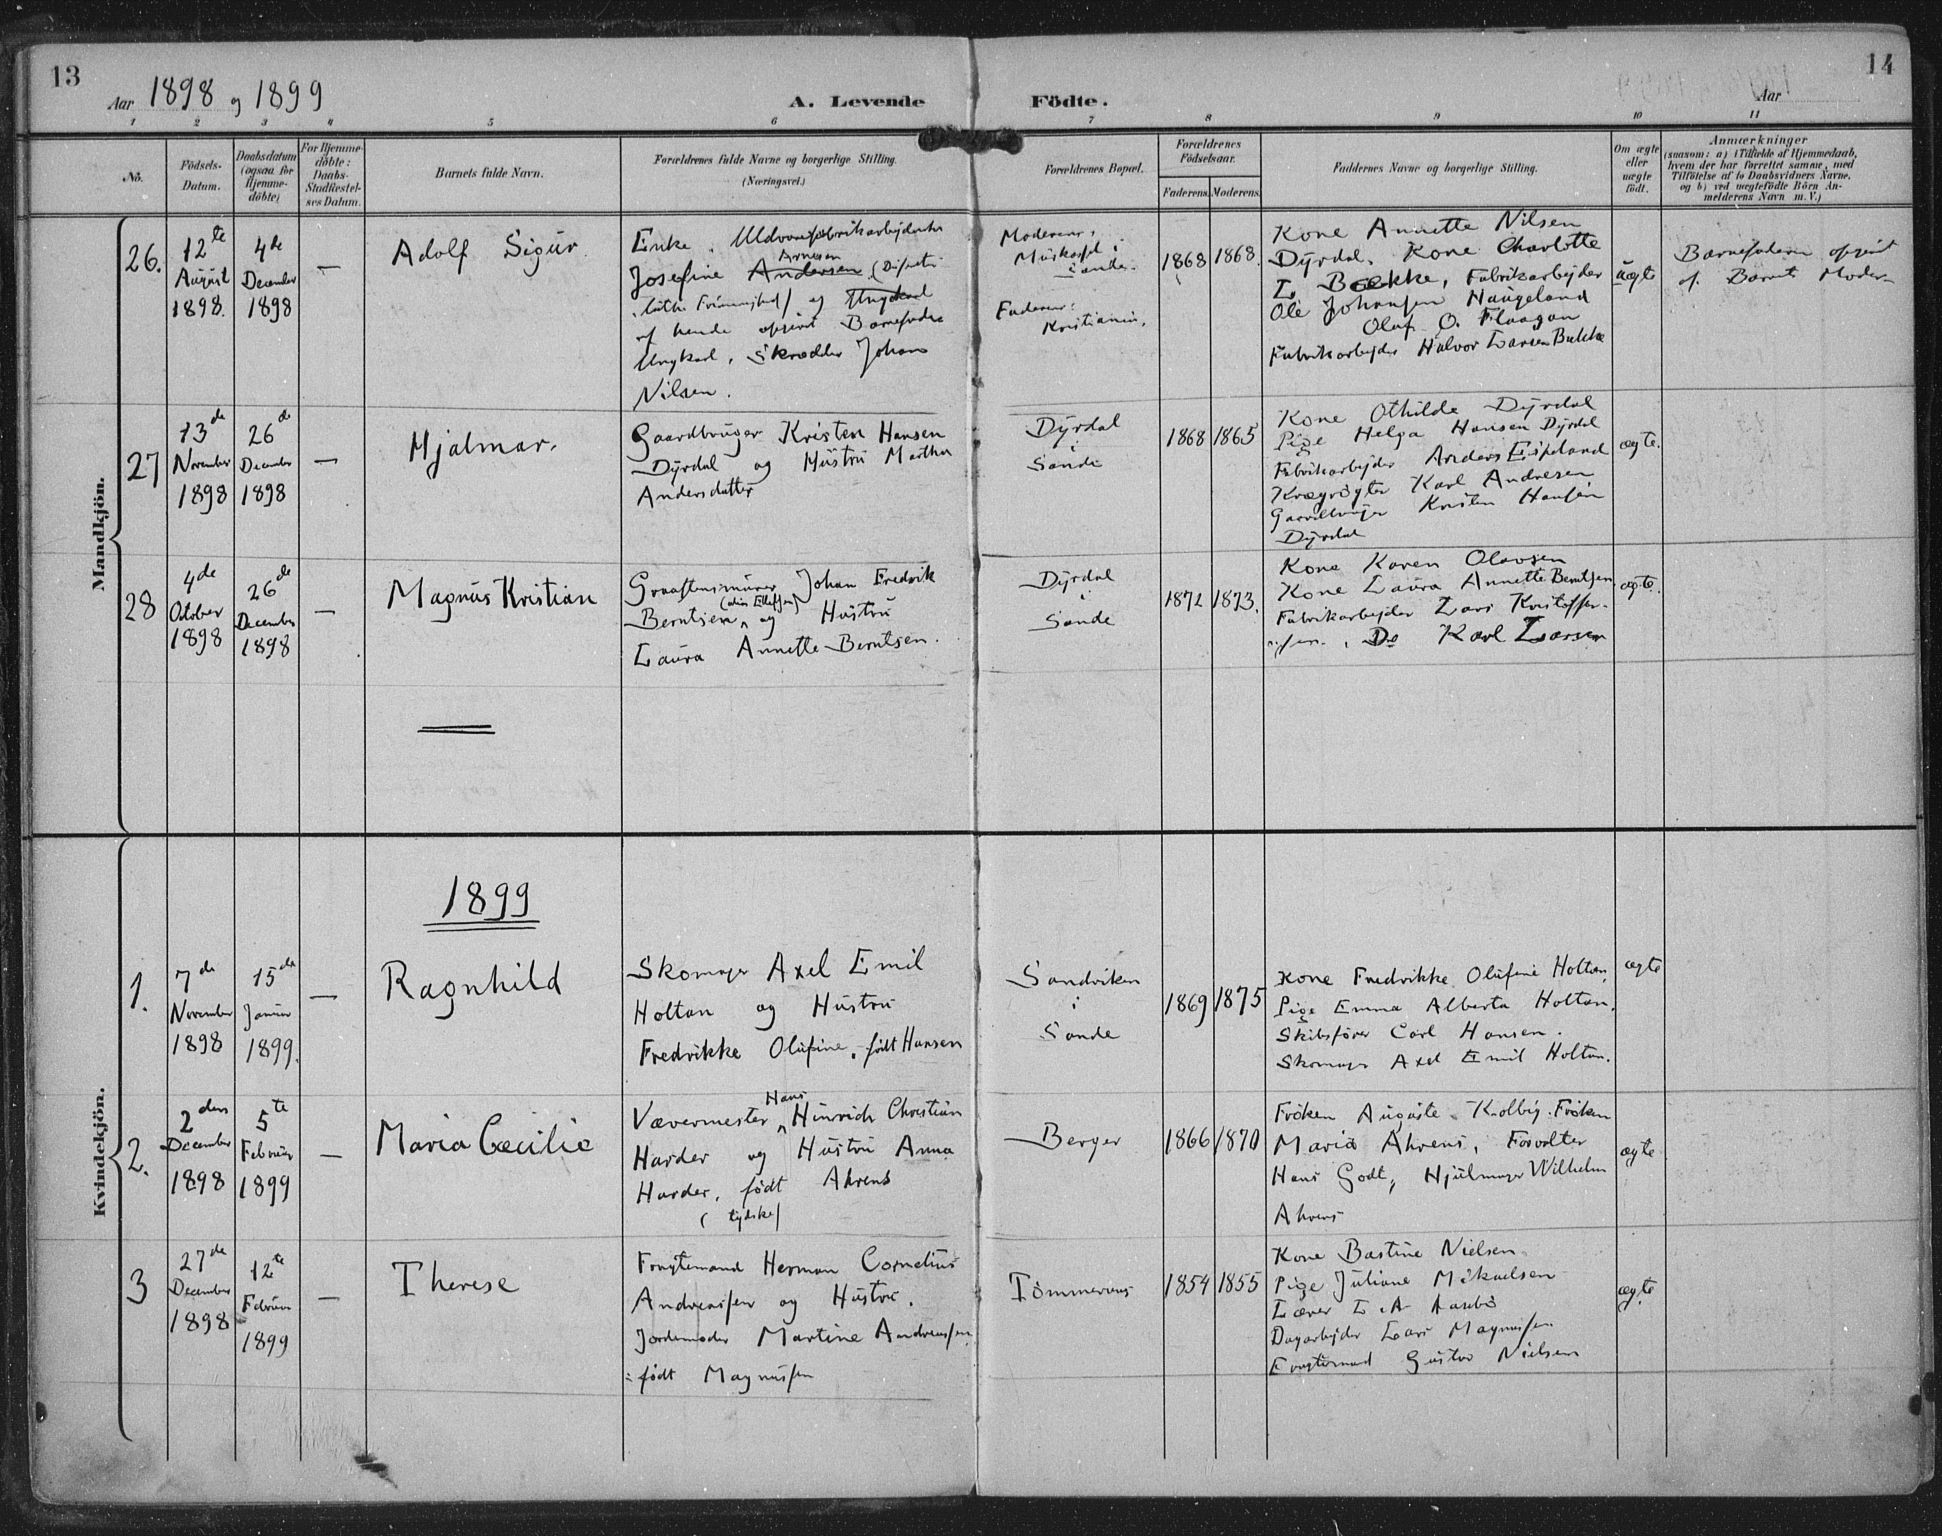 13
Aar 1898 og 1899
A. Levende Födte.
Aar
14
1 2 3 4 5 6 7 8 9 10 11
No.
Födsels-
Datum.
Daabsdatum
(ogsaa for
Hjemme-
döbte)
For Hjemme-
döbte:
Daabs-
Stadfæstel-
ses Datum.
Barnets fulde Navn.
Forældrenes fulde Navne og borgerlige Stilling.
(Næringsvei.)
Forældrenes Bopæl.
Forældrenes
Födselsaar.
Faderens. Moderens.
Faddernes Navne og borgerlige Stilling.
Om ægte
eller
uægte
födt.
Anmærkninger
(saasom: a) i Tilfælde af Hjemmedaab,
hvem der har forrettet samme, med
Tilföielse af to Daabsvidners Navne,
og b) ved uægtefödte Börn An-
melderens Navn m. V.)
Mandkjön.
26.
12te
August
1898.
4de
December
1898
—
Adolf Sigur
Enke, Uldvarefabrikarbejderske
Arnesen
Josefine Andersen
af hende opgivet Barnefader
Ungkarl, Skrædder Johan
Nilsen.
Moderens:
i Sande.
Faderens:
Kristiania.
1868
1868.
Kone Annette Nilsen
Dyrdal, Kone Charlotte
L. Bække, Fabrikarbejder
Ole Johansen Haugeland
Olaf O. Flaagan
Fabrikarbejder Halvor Larsen Bække
uægte
Barnefaderen opgivet
af Barnets Moder
27
13de
November
1898
26de
December
1898
—
Hjalmar.
Gaardbruger Kristen Hansen
Dyrdal og Hustru Marthe
Andersdatter
Dyrdal
i
Sande
1868
1865
Kone Othilde Dyrdal
Pige Helga Hansen Dyrdal
Fabrikarbejder Anders Eipeland
Kragrögter Karl Andresen
Gaardbruger Kristen Hansen
Dyrdal
ægte.
28
4de
October
1898
26de
December
1898
—
Magnus Kristian
Graastensmurer Johan Fredrik
Berntsen (alias Ellefsen) og Hustru
Laura Annette Berntsen.
Dyrdal
i
Sande
1872
1873.
Kone Karen Olavsen
Kone Laura Annette Berntsen
Fabrikarbejder Lars Kristoffer-
sen, Do Karl Larsen
ægte.
Kvindekjön.
1899
1.
7de
November
1898
15de
Januar
1899.
—
Ragnhild
Skomager Axel Emil
Holtan og Hustru
Fredrikke Olufine, født Hansen
Sandviken
i
Sande
1869
1875
Kone Fredrikke Olufine Holtan,
Pige Emma Alberta Holtan.
Skibsfører Carl Hansen.
Skomager Axel Emil Holtan.
ægte
2.
2den
December
1898
5te
Februar
1899
—
Maria Cæcilie
Hans
Vævermester Hinrich Christian
Harder og Hustru Anna
Harder, født Ahrens
(tydske)
Berger
1866
1870
Frøken Auguste Kolbig. Frøken
Maria Ahrens, Forvalter
Hans Godt, Hjulmager Wilhelm
Ahrens
ægte
3
27de
December
1898
12te
Februar
1899
—
Therese
Fragtemand Herman Cornelius
Andreassen og Hustru,
Jordemoder Martine Andreassen
født Magnussen
Tömmeraas
1854
1855
Kone Bastine Nielsen
Pige Juliane Mikaelsen
Lærer L. A. Aasebö
Dagarbejder Lars Magnussen
Fragtemand Gustav Nielsen
ægte